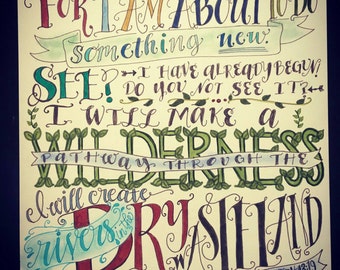 FOR I AM ABOUT TO DO
something new.
SEE! I HAVE ALREADY BEGUN!
DO YOU NOT SEE IT?
I WILL MAKE A
WILDERNESS
PATHWAY THROUGH THE
I will create
rivers in the
DRY WASTELAND
43:19